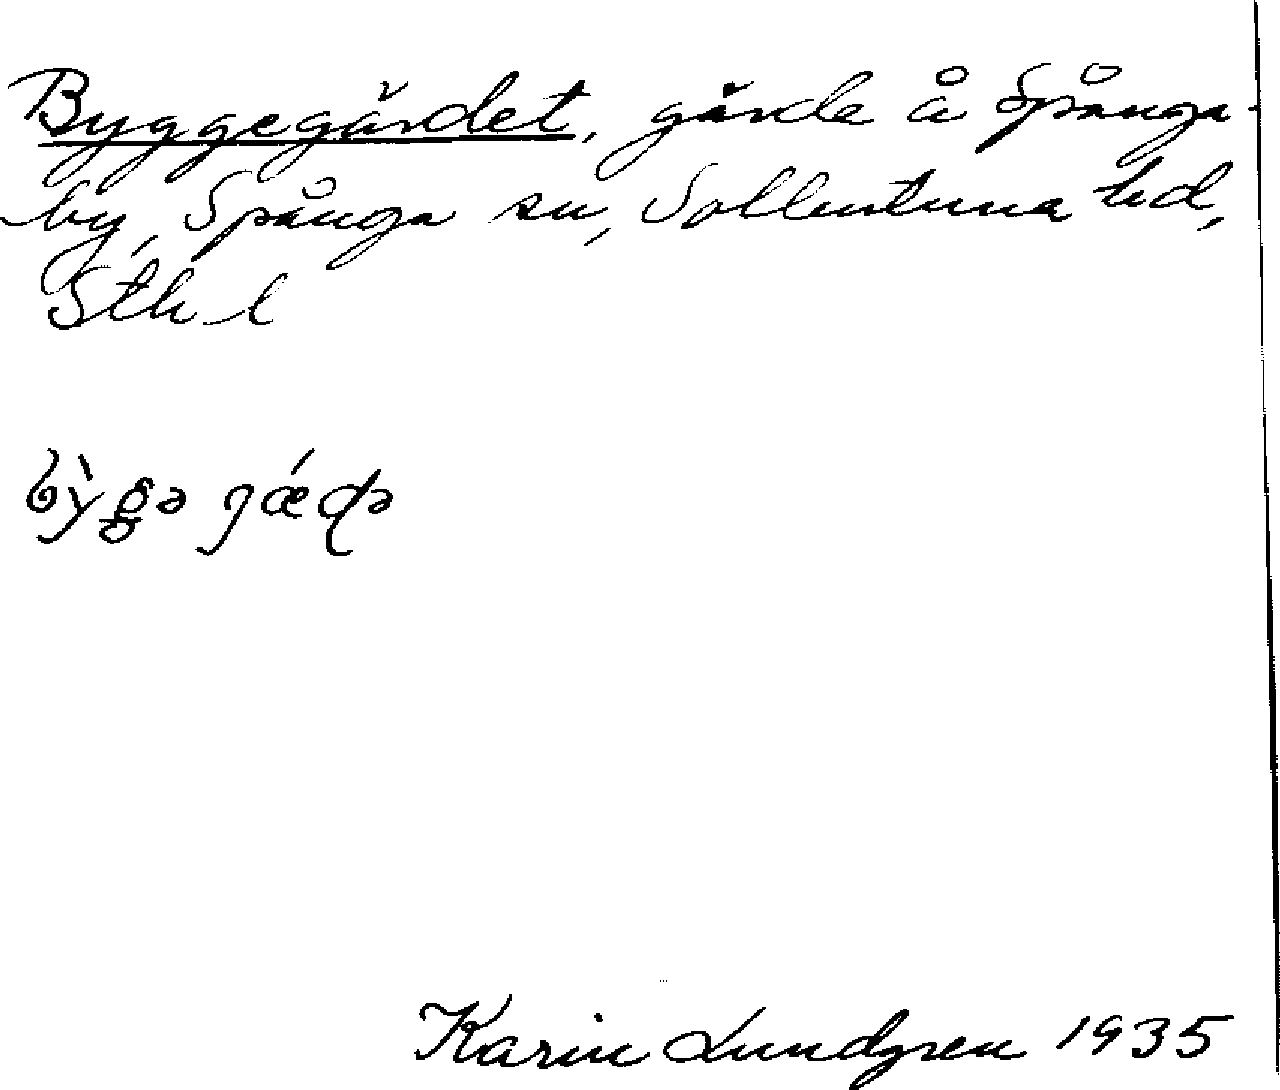 Byggegärdet, gärde å Spånga-
by, Spånga sn, Sollentuna hd,
Sth l
bỳgə jǽɖə
Karin Lundgren 1935